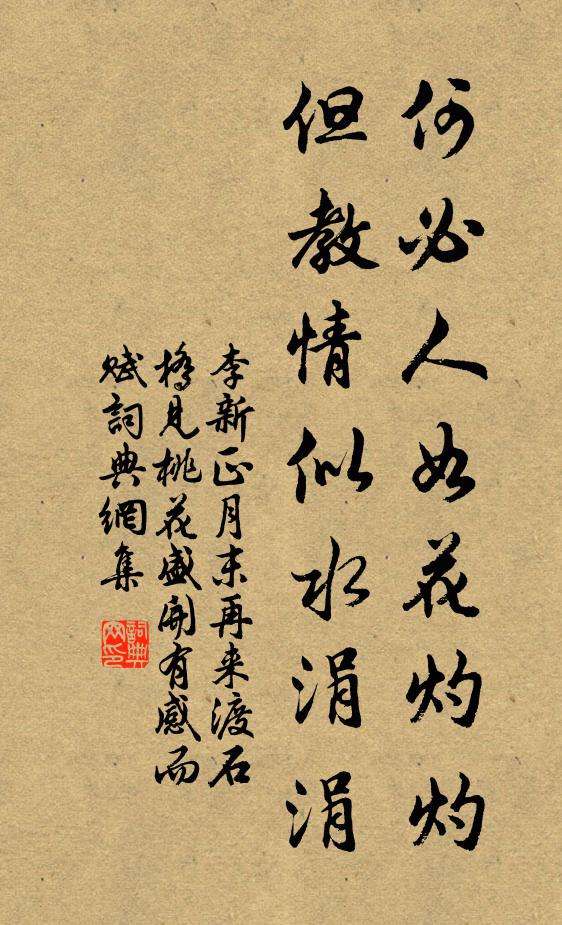 何必人如花灼灼
但教情似水涓涓
李新正月末再来渡石
橋見桃花盛開有感而
賦詞典網集
詞典
网印